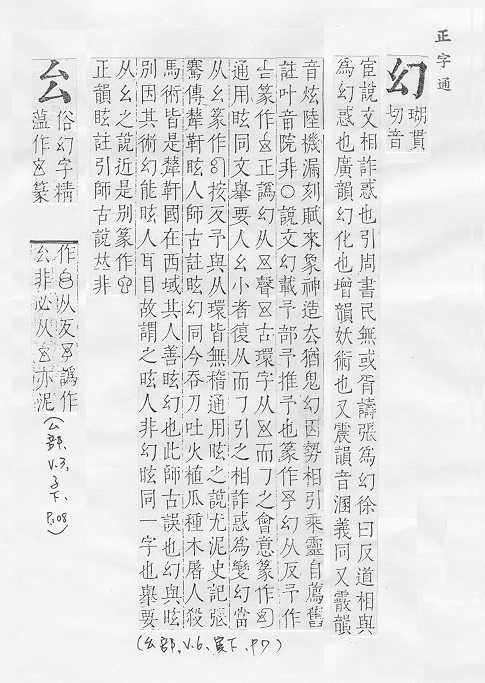 正字通
幻
瑚貫
切音
宦說文相詐惑也引周書民無或胥譸張為幻徐曰反道相與
為幻惑也廣韻幻化也增韻妖術也又震韻音涵義同又霰韻
音炫陸機漏刻賦來象神造去猶鬼幻因勢相引乘靈自薦舊
註叶音院非○說文幻載予部予推予也篆作幻从反予作
篆作正譌幻从聲古環字从而𠃌之會意篆作
通用眩同文舉要人幺小者復从而𠃌引之相詐惑為變幻當
从幺篆作按反予與从環皆無稽通用眩之說尤泥史記張
騫傳犛軒眩人師古註眩幻同今吞刀吐火植瓜種木屠人殺
馬術皆是犛軒國在西域其人善眩幻也此師古誤也幻與眩
別因其術幻能眩人耳目故謂之眩人非幻眩同一字也舉要
从幺之說近是別篆作
正韻眩註引師古說夶非
(幺部, V.6, 寅下, P.7)
厸
俗幻字精
薀作篆
作从反譌作
幺非必从亦泥
(厶部, V.3, 子下, P.108)